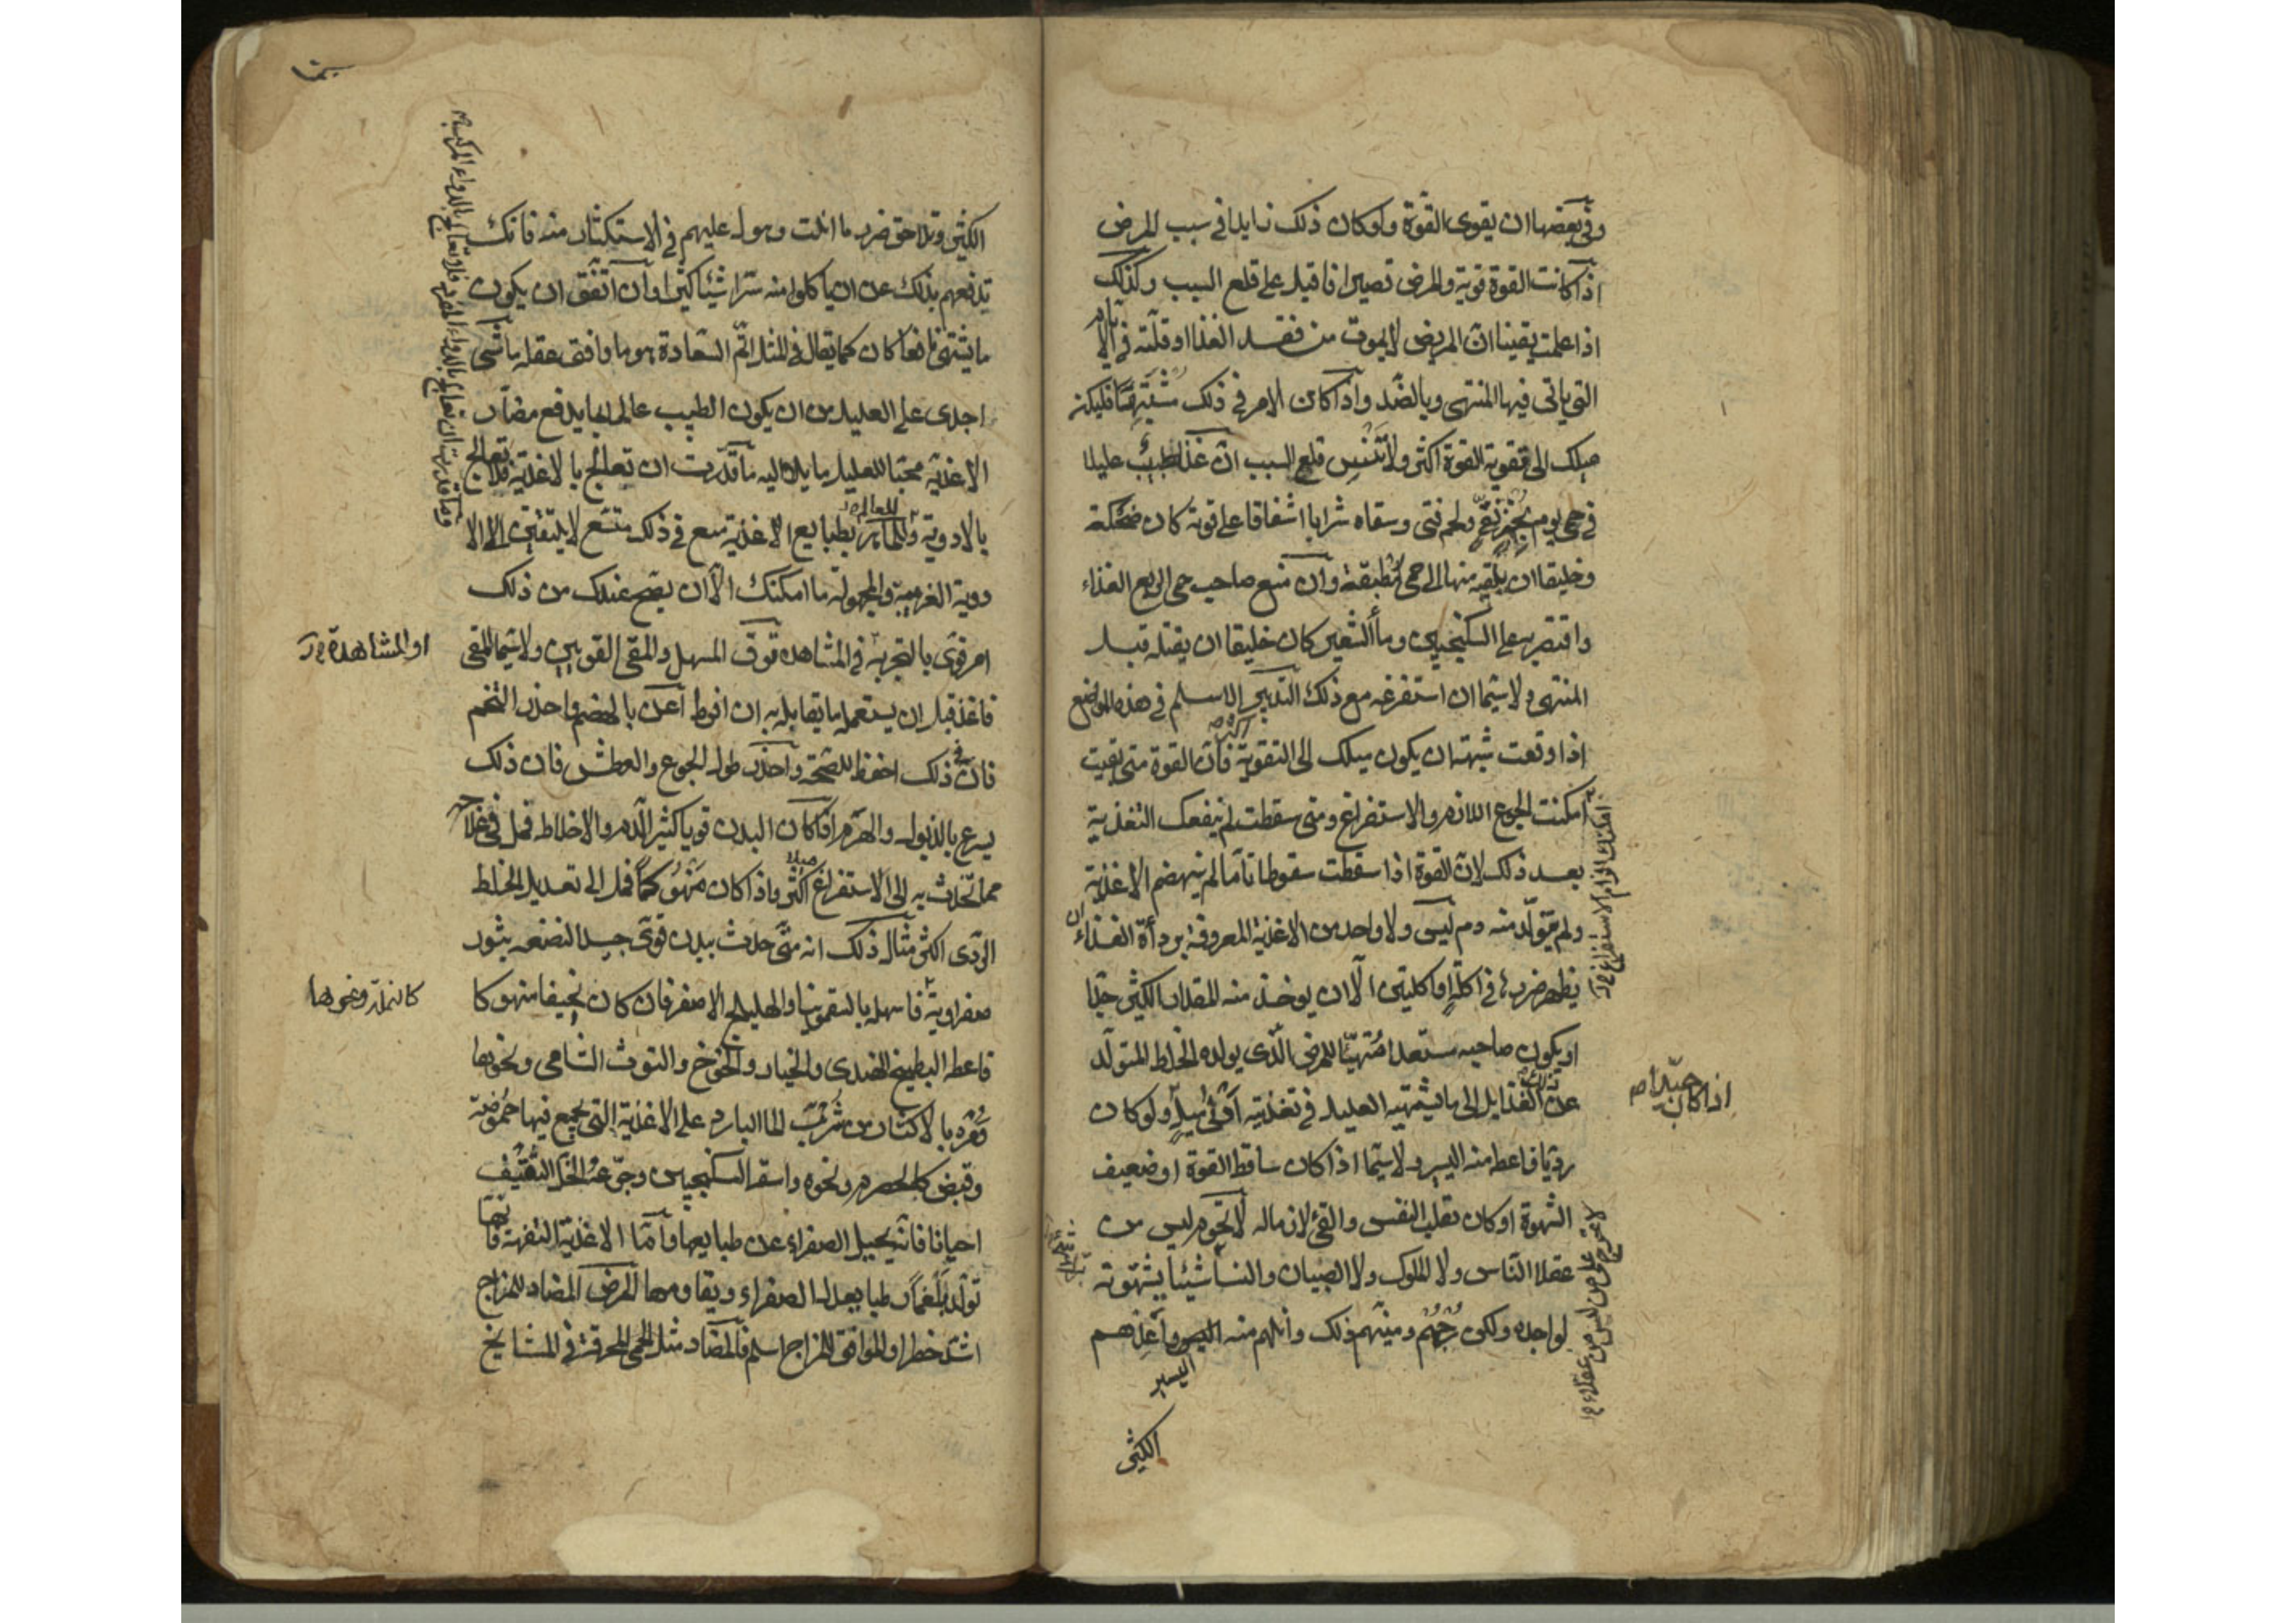 وفي بعضها ان يقوى القوة ولو كان ذلك زايدا في سبب المرض
اذا كانت القوة قوية والمرض قصيرا فاقبل على قلع السبب وكذلك
اذا علمت يقينا ان المريض لا يموت من فقد الغذا او قلته في الايام
التي ياتي فيها المنتهى وبالضد واذا كان الامر في ذلك مشتبها فليكن
ميلك الى تقوية القوة اكثر ولا تنس قلع السبب ان غذا طبيب عليلا
في حمى يوم بخبز نقي ولحم فتى وسقاه شرابا اشفاقا على قوته كان ضحكة
وخليقا ان يلقيه منها الى حمى مطبقة وان منع صاحب حمى الربع الغذاء
واقتصر به على السكنجبين وماء الشعير كان خليقا ان يقتله قبل
المنتهى ولا سيما ان استفرغه مع ذلك التدبير الاسلم في هذه المواضع
اذا وقعت شبهة ان يكون ميلك الى التقوية اكثر فان القوة متى بقيت
امكنت الجوع اللازم والاستفراغ ومتى سقطت لم ينفعك التغذية
بعد ذلك لان القوة اذا سقطت سقوطا تاما لم ينهضم الاغذية
ولم يتولد منه دم ليس ولا واحد من الاغذية المعروفة برداءة الغذاء ان
يظهر ضرره في اكلة او اكلتين الا ان يوخذ منه المقدار الكثير جدا
او يكون صاحبه مستعدا متهيئا للمرض الذي يولده الخلط المتولد
عن ذلك الغذا مل الى ما يشتهيه العليل في تغذيته ادنى ميل ولو كان
رديا فاعطه منه اليسير لا سيما اذا كان ساقط القوة او ضعيف
الشهوة او كان تقلب النفس والقئ لازما له لا تحرم ليس من
عقلا الناس ولا الملوك ولا الصبيان والنسا شيئا يشتهونه
لواجده ولكن زجهم ومنيهم ذلك وانلهم منه اليسير واغذهم
اليسير
الكثير
امكنك الزام الاستفراغ
اذا كان جيدا
لا تحرص على من ليس من عقلاء
الكثير وتلاحق ضرر ما انلت وهول عليهم في الاستكثار منه فانك
تدفعهم بذلك عن ان ياكلوا منه سرا شيئا كثيرا وان اتفق ان يكون
ما يشتهى نافعا كان كما يقال في المثل اتم السعادة هو ما وافق عقله ما شئ
اجدى على العليل من ان يكون الطبيب عالما بما يدفع مضار
الاغذية محببا للعليل ما يلذ اليه ما قدرت ان تعالج بالاغذية فلا تعالج
بالادوية وللماهر بطبايع الاغذية متسع في ذلك متسع لا يلتفتن الى الا
دوية الغريبة والمجهولة ما امكنك الا ان يصح عندك من ذلك
امر قوى بالتجربة في المشاهدة توق المسهل والمقئ القويين ولا سيما المقئ
فاغذ قبل ان يستعمل ما يقابله به ان افرط اعن بالهضم واحذر التخم
فان في ذلك احفظ للصحة واحذر طول الجوع والعطش فان ذلك
يسرع بالذبول والهرم اذا كان البدن قويا كثير الدم والاخلاط فمل في علاجه
مما تحدث به الى الاستفراغ اكثر ميلا واذا كان منهوكا فمل الى تعديل الخلط
الردى اكثر مثال ذلك انه متى حدث ببدن قوى جيد النضعه بثور
صفراوية فاسهله بالسقمونيا والهليلج الاصفر فان كان نحيفا منهوكا
فاعطه البطيخ الهندى والخيار والخوخ والتوث الشامى ونحوها
ومره بالاكثار من شرب الما البارد على الاغذية التي يجمع فيها حموضة
وقبض كالحصرم ونحوه واسقه السكنجبين وجرعه الخل الثقيف
احيانا فانه يحيل الصفراء عن طبايعها واما الاغذية التفهة فانها
تولد بلغما رطبا يعدل الصفراء ويقاومها المرض المضاد للمزاج
اشد خطرا والموافق للمزاج اسلم فالمضاد مثل الحمى المحرقة في المشايخ
وما قدرت ان تعالج بالدواء المفرد فلا تعالج بالدواء المركب
او المشاهدة
كالنملة ونحوها